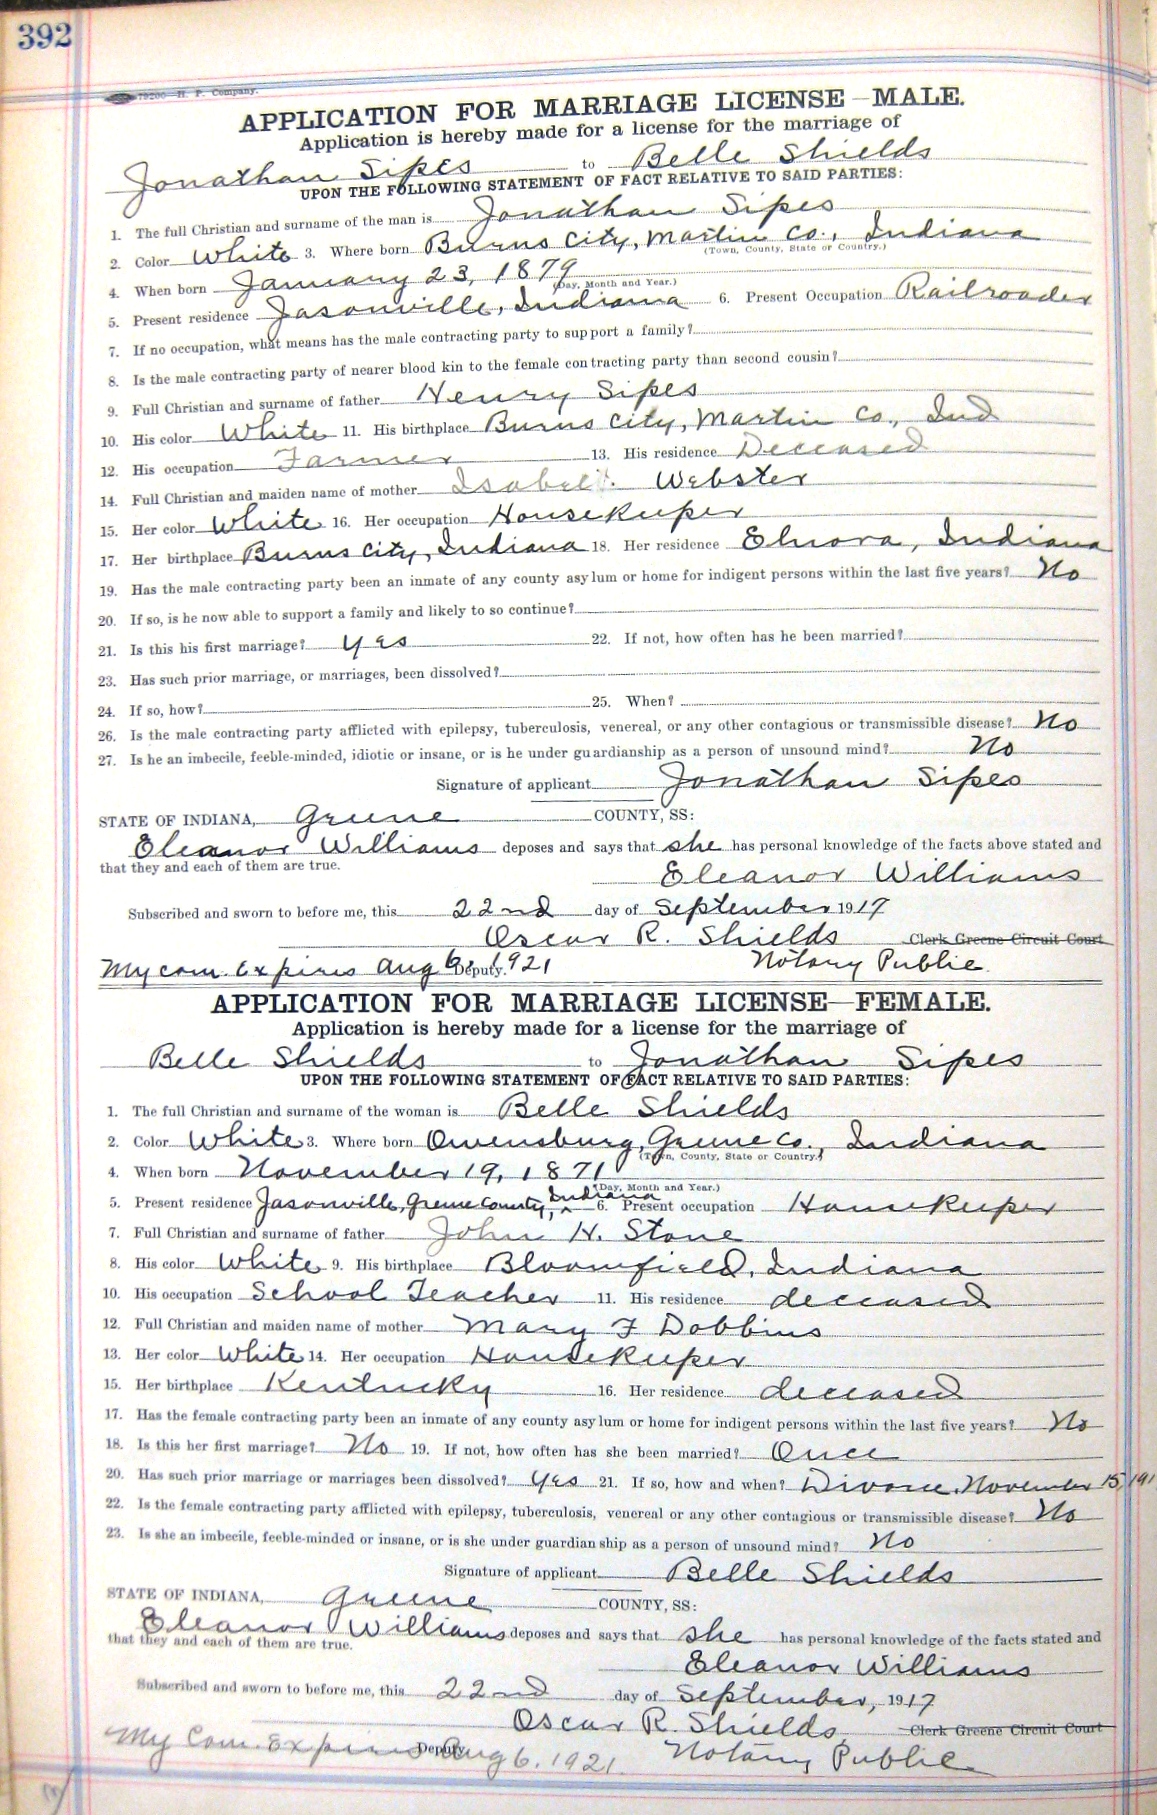 392
79200—H. P. Company.
APPLICATION FOR MARRIAGE LICENSE—MALE.
Application is hereby made for a license for the marriage of
Jonathan Sipes to Belle Shields
UPON THE FOLLOWING STATEMENT OF FACT RELATIVE TO SAID PARTIES:
1. The full Christian and surname of the man is Jonathan Sipes
2. Color White 3. Where born Burns City, Martin Co., Indiana
(Town, County, State or Country.)
4. When born January 23, 1879
(Day, Month and Year.)
5. Present residence Jasonville, Indiana 6. Present Occupation Railroader
7. If no occupation, what means has the male contracting party to support a family?
8. Is the male contracting party of nearer blood kin to the female contracting party than second cousin?
9. Full Christian and surname of father Henry Sipes
10. His color White 11. His birthplace Burns City, Martin Co., Ind
12. His occupation Farmer 13. His residence Deceased
14. Full Christian and maiden name of mother Isabel Webster
15. Her color White 16. Her occupation Housekeeper
17. Her birthplace Burns City, Indiana 18. Her residence Elnora, Indiana
19. Has the male contracting party been an inmate of any county asylum or home for indigent persons within the last five years? No
20. If so, is he now able to support a family and likely to so continue?
21. Is this his first marriage? Yes 22. If not, how often has he been married?
23. Has such prior marriage, or marriages, been dissolved?
24. If so, how? 25. When?
26. Is the male contracting party afflicted with epilepsy, tuberculosis, venereal, or any other contagious or transmissible disease? No
27. Is he an imbecile, feeble-minded, idiotic or insane, or is he under guardianship as a person of unsound mind? No
Signature of applicant Jonathan Sipes
STATE OF INDIANA, Greene COUNTY, SS:
Eleanor Williams deposes and says that she has personal knowledge of the facts above stated and
that they and each of them are true.
Eleanor Williams
Subscribed and sworn to before me, this 22nd day of September 1917
Oscar R. Shields Clerk Greene Circuit Court
My com. Expires Aug 6, 1921 Deputy. Notary Public
APPLICATION FOR MARRIAGE LICENSE—FEMALE.
Application is hereby made for a license for the marriage of
Belle Shields to Jonathan Sipes
UPON THE FOLLOWING STATEMENT OF FACT RELATIVE TO SAID PARTIES:
1. The full Christian and surname of the woman is Belle Shields
2. Color White 3. Where born Owensburg, Greene Co., Indiana
(Town, County, State or Country.)
4. When born November 19, 1871
(Day, Month and Year.)
5. Present residence Jasonville, Greene County, Indiana 6. Present occupation Housekeeper
7. Full Christian and surname of father John H. Stone
8. His color White 9. His birthplace Bloomfield, Indiana
10. His occupation School Teacher 11. His residence deceased
12. Full Christian and maiden name of mother Mary F Dobbins
13. Her color White 14. Her occupation Housekeeper
15. Her birthplace Kentucky 16. Her residence deceased
17. Has the female contracting party been an inmate of any county asylum or home for indigent persons within the last five years? No
18. Is this her first marriage? No 19. If not, how often has she been married? Once
20. Has such prior marriage or marriages been dissolved? Yes 21. If so, how and when? Divorce, November 15, 191
22. Is the female contracting party afflicted with epilepsy, tuberculosis, venereal or any other contagious or transmissible disease? No
23. Is she an imbecile, feeble-minded or insane, or is she under guardianship as a person of unsound mind? No
Signature of applicant Belle Shields
STATE OF INDIANA, Greene COUNTY, SS:
Eleanor Williams deposes and says that she has personal knowledge of the facts stated and
that they and each of them are true.
Eleanor Williams
Subscribed and sworn to before me, this 22nd day of September, 1917
Oscar R. Shields, Clerk Greene Circuit Court
My Com. Expires Aug 6, 1921. Deputy. Notary Public